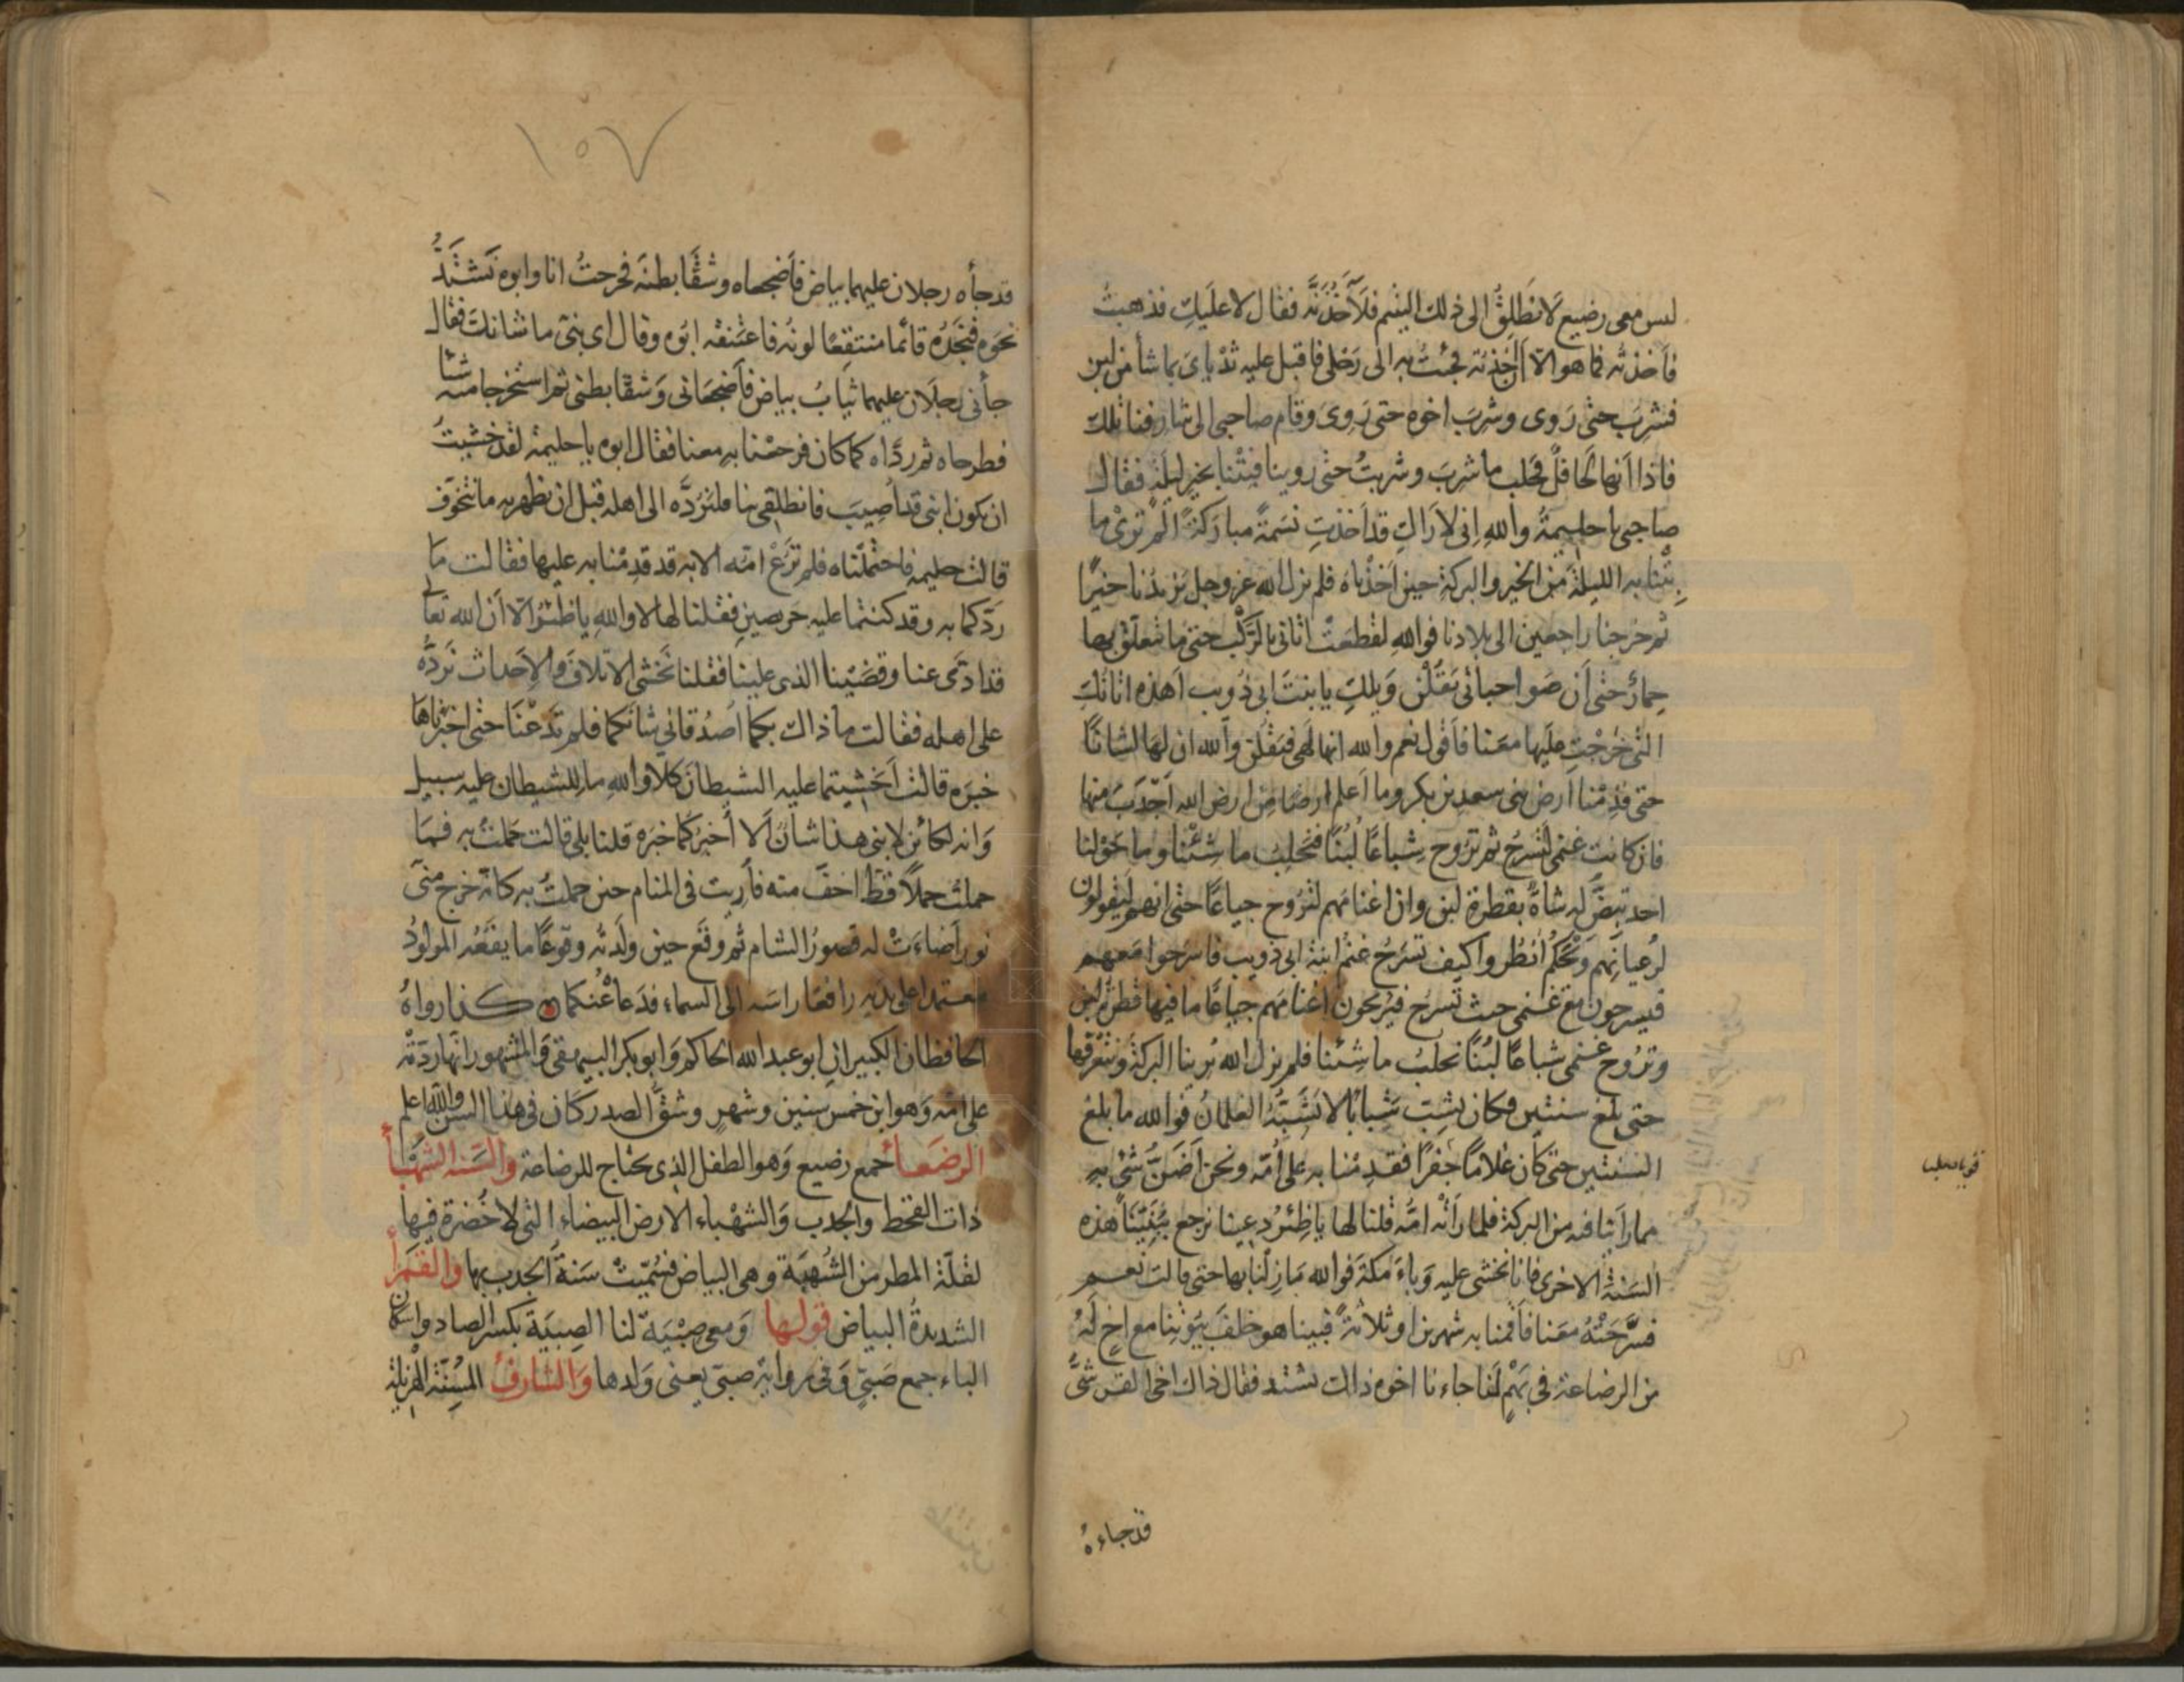 ليس معي رضيع لانطلق الى ذلك اليتيم فلآخذنّه فقال لا عليكِ فذهبتُ
فاخذته فما هو الّا ان اخذته فجئت به الى رَحلي فاقبل عليه ثدياىَ بما شأ من لبن
فشربَ حتى رَوى وشربَ اخوه حتى رَوىَ وقام صاحبي الى شارفنا تلك
فاذا انها لحافلٌ فحلب ما شربَ وشربتُ حتى روينا فبتنا بخير ليلة فقال
صاحبي يا حليمة والله اني لاَراكِ قد اَخذتِ نسَمةً مباركةً الم ترىْ ما
بِتنا به الليلة من الخير والبركة حين اَخذناه فلم يزل الله عز وجل يزيدُنا خيرًا
ثم خرجنا راجعين الى بلادنا فوالله لقطعَتْ اتاني بالرَّكْب حتى ما يتعلّق بها
حِمارٌ حتى اَن صَواحباتي يَقُلْنَ وَيلكِ يا بنتَ ابي ذُويب اَهذه اتانكِ
التي خَرجْتِ عليها معَنا فاَقول نعم والله انها لَهى فيَقُلْنَ والله ان لها لشانًا
حتى قدِمْنا اَرض بنى سعد بن بكر وما اَعلم ارضًا مِن ارض الله اَجْدَبَ منها
فان كانت غنمي لَتسرحُ ثم تروح شِباعًا لُبّنًا فنحلبُ ما شئنا وما حَولنا
احد تبِضّ له شاةٌ بقطرةِ لبن وان اغنامَهم لتَرُوح جياعًا حتى انهم ليَقولون
لرُعيانِهم وَيْحَكُم اُنظُروا كيف تسرَحُ غنمُ ابنة ابي ذويب فاسرَحوا معهم
فيسرحون مع غنمي حيث تسرَح فيُريحون اغنامَهم جياعًا ما فيها قطرة لبن
وتَرُوح غنمي شباعًا لُبّنًا نحلبُ ما شئنا فلم يزل الله يُرينا البركة ونتعرّفها
حتى بلغ سنتين فكان يشِبّ شِبابًا لا تشبّه الغلمان فوالله ما بلغ
السنتين حتى كان غلامًا جَفرًا فقدِمْنا به على اُمّه ونحن اَضَنّ شئ به
مما راَينا فيه من البركة فلما راَته امّه قلنا لها يا ظِئرُ دعينا نرجع بنَبيّنا هذه
السَنةَ الاخرى فانا نخشى عليه وَباءَ مكة فوالله ما زِلنا بها حتى قالت نعم
فسرَّحَتْهُ معَنا فاَقمنا به شهرين او ثلاثةً فبينا هو خلفَ بيوتنا مع اخٍ لَهُ
من الرضاعة في بَهْمٍ لنا جاءنا اخوه ذالك يشتد فقال ذاك اخي القرشىّ
قد جاءهُ
١٥٧
قد جأه رجلان عليهما بياض فاَضجعاه وشقّا بطنَه فخرجتُ انا وابوه نَشتدُّ
نحوَه فنجدُه قائمًا منتقِعًا لونُه فاعتنقه ابُوه وقال اي بنىّ ما شانك فقال
جأني رجلان عليهما ثيابُ بياض فاَضجعَاني وَشقّا بطني ثم استخرجا منه شئا
فطرحاه ثم ردّاه كما كان فرجعْنا به معنا فقال ابوه يا حليمة لقد خشيتُ
ان يكون ابنى قد اُصيبَ فانطلقي بنا فلنردَّه الى اهله قبل ان يظهر به ما نتخوّف
قالت حليمه فاحتملناه فلم تَرُعْ امّه الا به قد قدِمْنا به عليها فقالت مَا
ردّكما به وقد كنتما عليه حَرِيصين فقلنا لها لا واللهِ يا ظئر الّا اَن الله تعالى
قد ادّى عنا وقضَيْنا الذي علينا فقلنا نَخشى الاتلافَ والاَحداث نردُّه
على اهله فقالت ما ذاك بكما اصدُقاني شانَكما فلم تَدعْنا حتى اخبرْناها
خبرَه قالت اَخشيتما عليه الشيطانَ كلّا والله ما للشيطان عليه سبيل
وَانه لكائن لابني هذا شانٌ اَلا اُخبرُكما خبرَه قلنا بلى قالت حَملتُ به فمَا
حملت حملاً قط اخفّ منه فاُرِيت في المنام حين حملتُ به كانّه خرج منّى
نور اَضاءَتْ له قصورُ الشام ثم وقَع حين ولَدته وقوعًا ما يقَعُه المولودُ
معتمدا على يديه رافعًا راسَه الى السماء فدعاهُ عنكما ٥ كذا رواهُ
الحافظان الكبيران ابو عبد الله الحاكم وَابو بكر البيهقى وَالمشهور انها ردّته
على امّه وَهو ابن خمس سنين وشهرٍ وشقُّ الصدر كان في هذا السن والله اعلم
الرضعأ جمع رضيع وَهو الطفل الذي يحتاج للرضاعة والسَنه الشهْبأ
ذات القحط والجدب وَالشهْباء الارض البيضاء التي لا خُضرة فيها
لقلّة المطر من الشُهبَة وهي البياض فسُمّيتْ سَنةَ الجدب بها والقمَرأ
الشديدةُ البياض قولها وَمعي صِبْيَة لنا الصِبيَة بكسر الصاد واسكان
الباء جمع صَبيّ وَفي رواية صبيّ يعني وَلدها وَالشارفُ المسِنّة الهزيلة